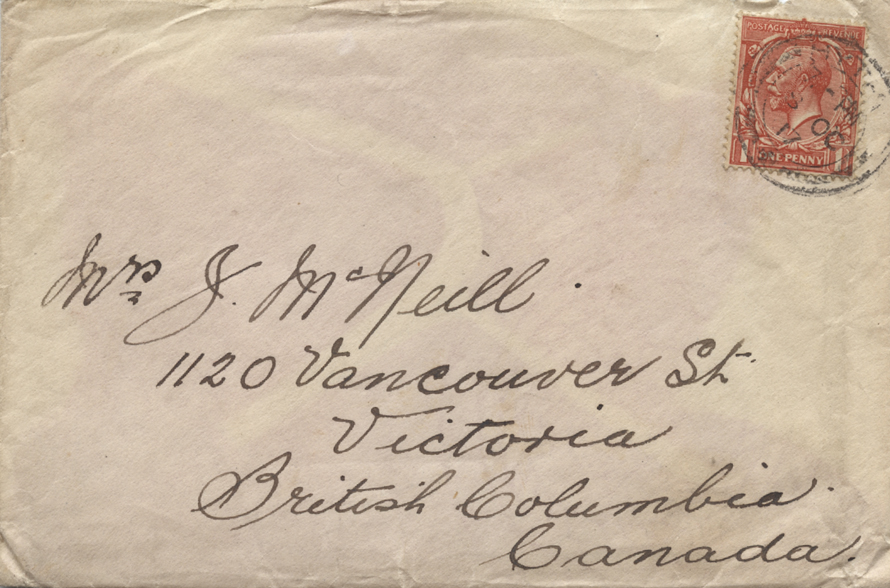 POSTAGE REVENUE
ONE PENNY
OC
17
Mrs J. McNeill.
1120 Vancouver St.
Victoria
British Columbia.
Canada.